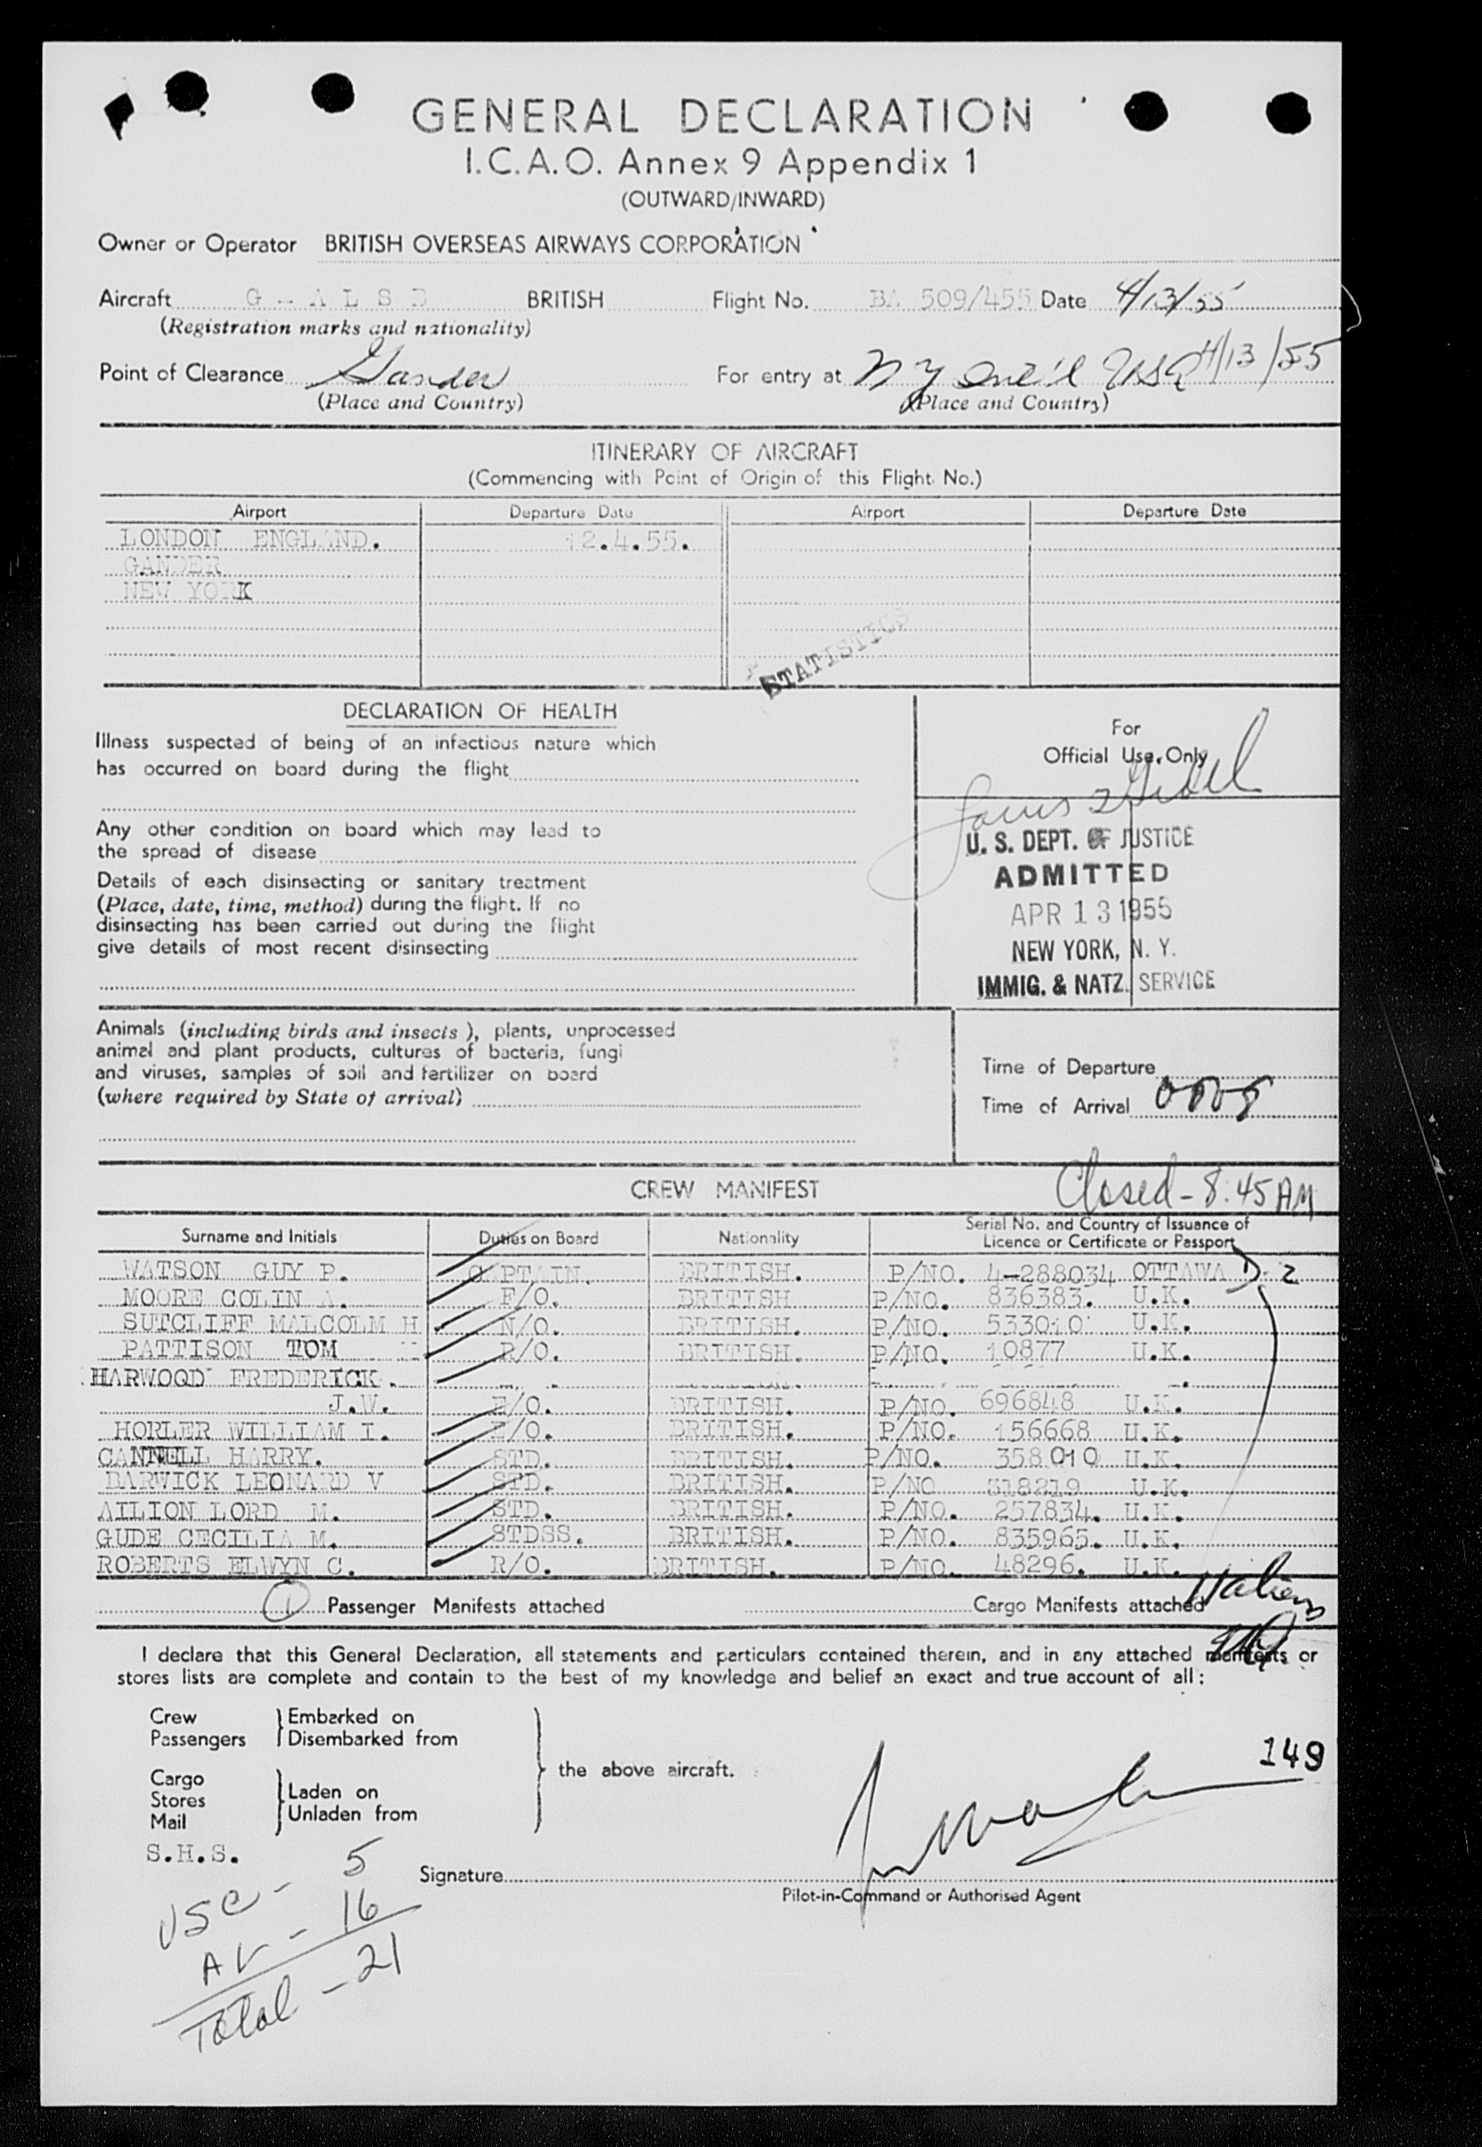 GENERAL DECLARATION
I.C.A.O. Annex 9 Appendix 1
(OUTWARD/INWARD)
Owner or Operator BRITISH OVERSEAS AIRWAYS CORPORATION
Aircraft G - A L S D BRITISH Flight No. BA 509/455 Date 4/13/55
(Registration marks and nationality)
Point of Clearance Gander For entry at N Y USA 4/13/55
(Place and Country) (Place and Country)
ITINERARY OF AIRCRAFT
(Commencing with Point of Origin of this Flight No.)
Airport Departure Date Airport Departure Date
LONDON ENGLAND. 12.4.55.
GANDER
NEW YORK
STATISTICS
DECLARATION OF HEALTH
Illness suspected of being of an infectious nature which
has occurred on board during the flight
Any other condition on board which may lead to
the spread of disease
Details of each disinsecting or sanitary treatment
(Place, date, time, method) during the flight. If no
disinsecting has been carried out during the flight
give details of most recent disinsecting
For
Official Use Only
U. S. DEPT. OF JUSTICE
ADMITTED
APR 13 1955
NEW YORK, N. Y.
IMMIG. & NATZ. SERVICE
Animals (including birds and insects ), plants, unprocessed
animal and plant products, cultures of bacteria, fungi
and viruses, samples of soil and fertilizer on board
(where required by State of arrival)
Time of Departure
Time of Arrival
CREW MANIFEST
Closed - 8:45 AM
Surname and Initials Duties on Board Nationality Serial No. and Country of Issuance of
Licence or Certificate or Passport
WATSON GUY P. CAPTAIN. BRITISH. P/NO. 4-288034 OTTAWA D-2
MOORE COLIN A. F/O. BRITISH P/NO. 836383. U.K.
SUTCLIFF MALCOLM H N/O. BRITISH. P/NO. 533010 U.K.
PATTISON TOM H R/O. BRITISH. P/NO. 10877 U.K.
HARWOOD FREDERICK.
J.W. E/O. BRITISH. P/NO. 696848 U.K.
HORLER WILLIAM I. E/O. BRITISH. P/NO. 156668 U.K.
CANNELL HARRY. STD. BRITISH. P/NO. 358010 U.K.
BARWICK LEONARD V STD. BRITISH. P/NO 318219 U.K.
AILION LORD M. STD. BRITISH. P/NO. 257834. U.K.
GUDE CECILIA M. STDSS. BRITISH. P/NO. 835965. U.K.
ROBERTS ELWYN C. R/O. BRITISH. P/NO. 48296. U.K.
1 Passenger Manifests attached Cargo Manifests attached
I declare that this General Declaration, all statements and particulars contained therein, and in any attached manifests or
stores lists are complete and contain to the best of my knowledge and belief an exact and true account of all :
Crew Embarked on
Passengers Disembarked from
the above aircraft.
Cargo
Stores Laden on
Mail Unladen from
149
S.H.S.
Signature
Pilot-in-Command or Authorised Agent
USC - 5
AL - 16
Total - 21